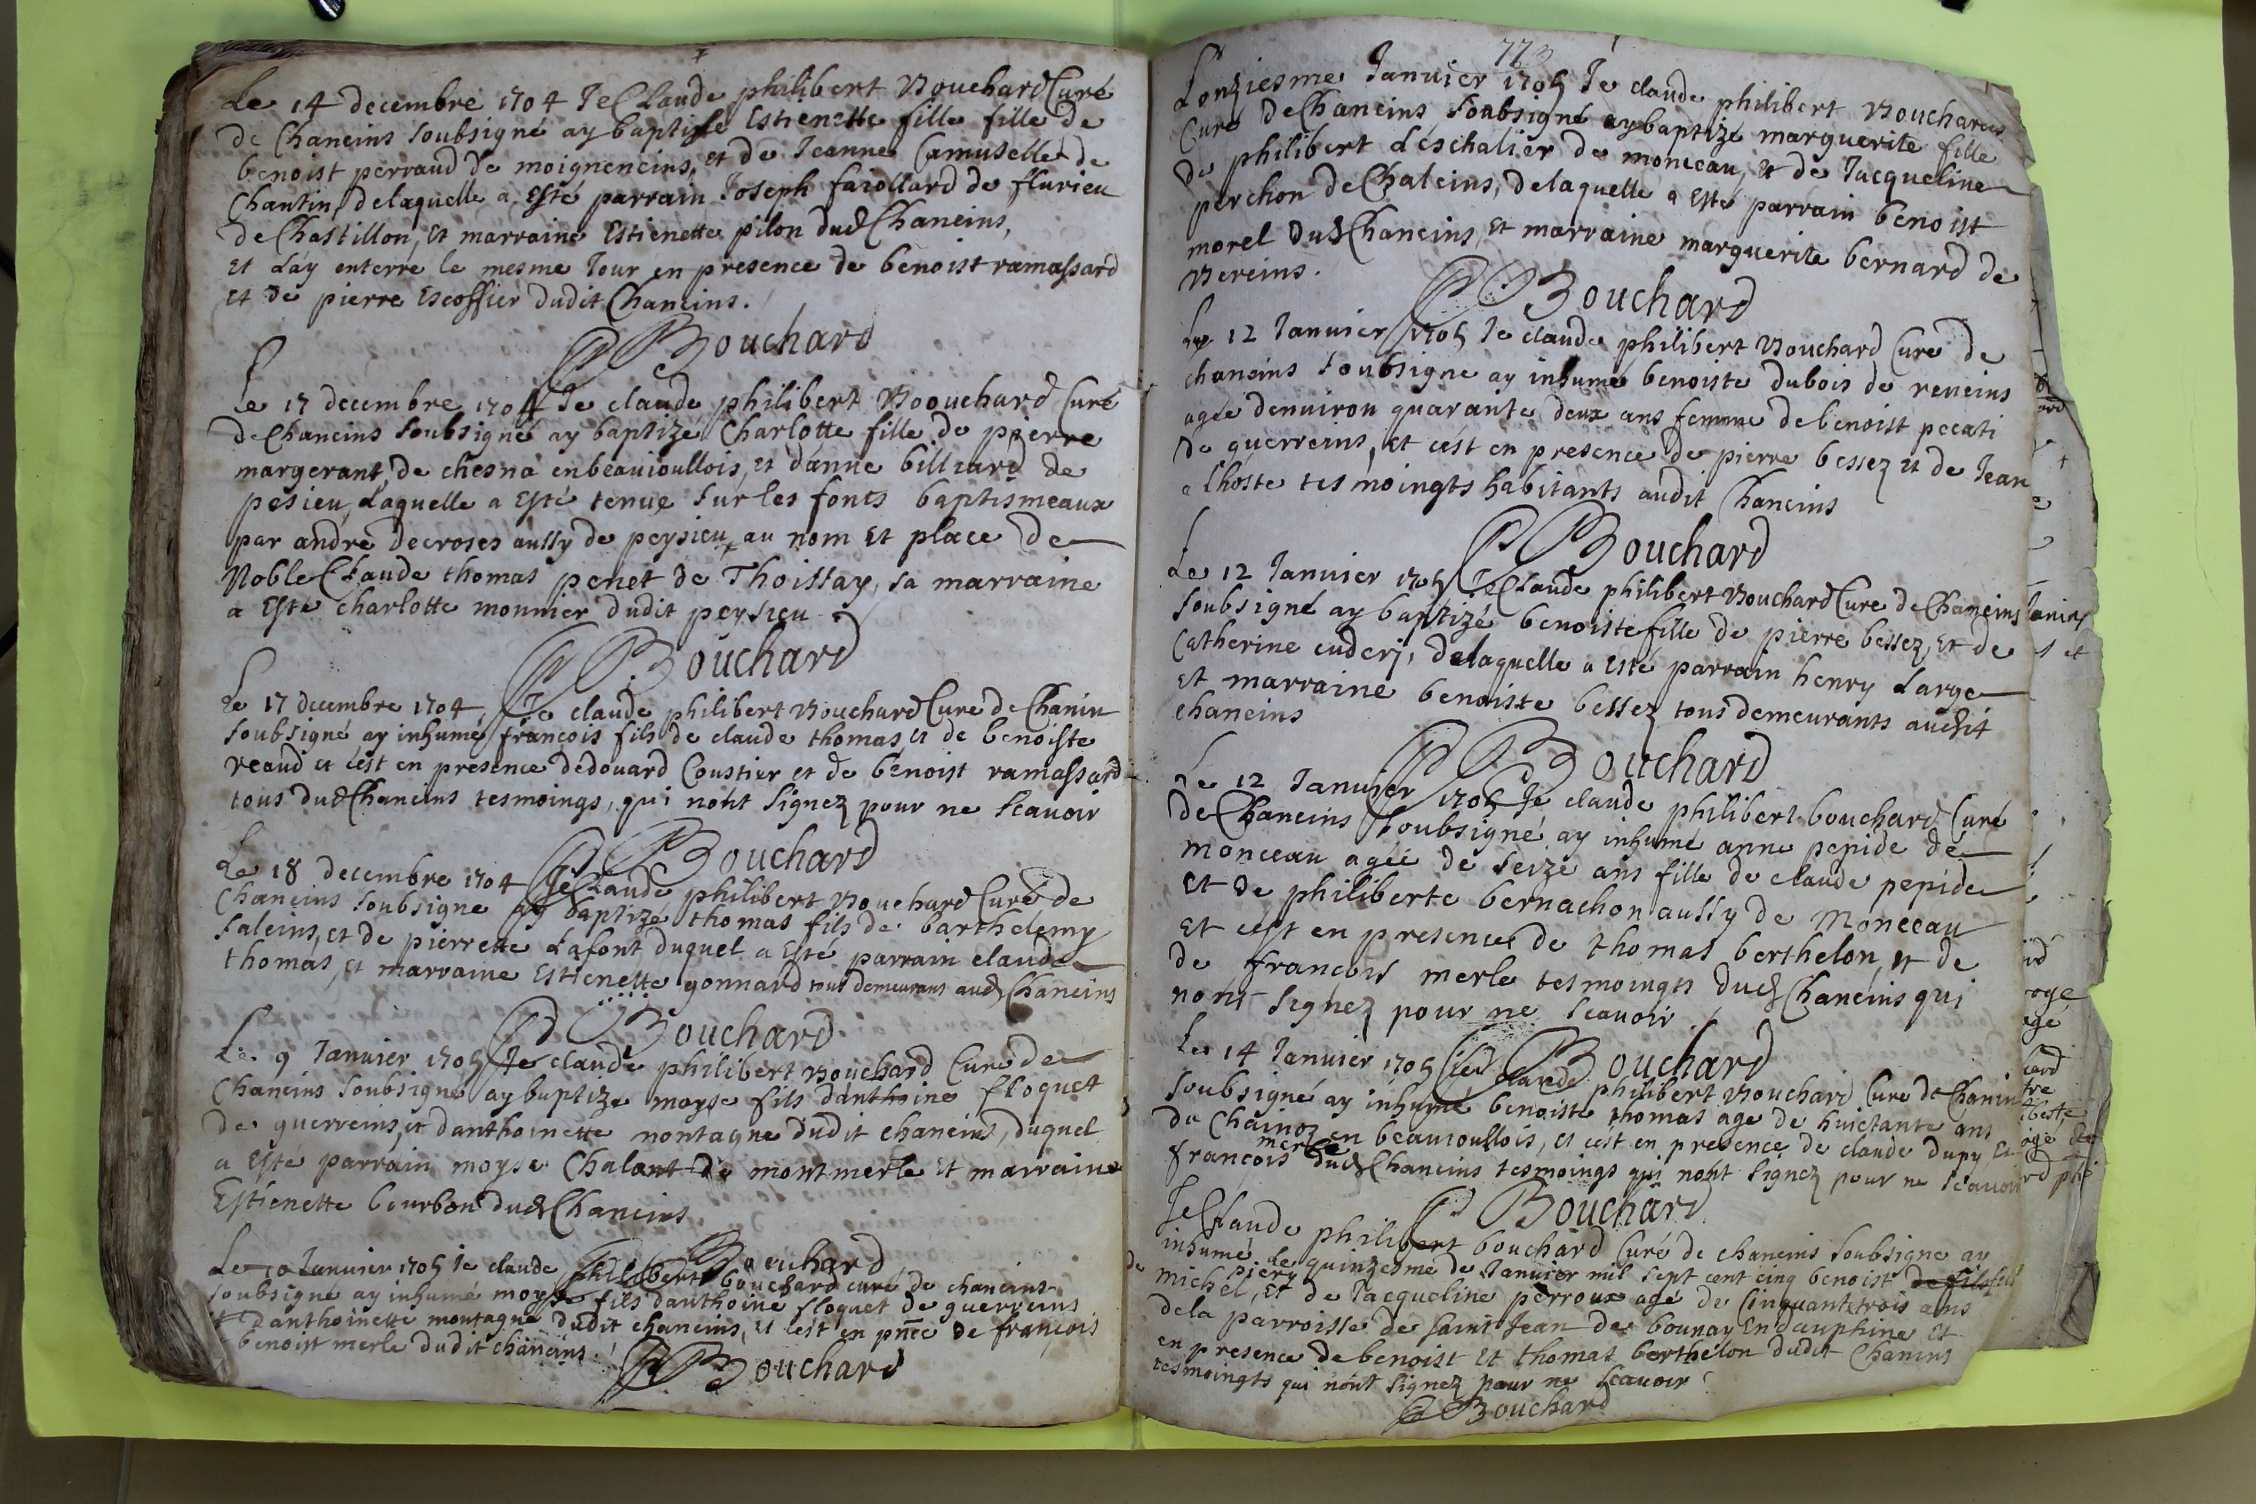 Le 14 decembre 1704 Je Claude philibert Bouchard Curé
de Chaneins soubsigné ay baptisé Estienette fille fille de
benoist perraud de moigneneins, et de Jeanne Camuselle de
Chantin, delaquelle a Esté parrain Joseph farollard de flurieu
de Chastillon, et marraine Estienette pilon dud Chaneins,
et l'ay enterré le mesme Jour en presence de benoist ramassard
et de pierre Escoffier dudit Chaneins.
Bouchard
Le 17 decembre 1704 Je claude philibert Boouchard Curé
de Chaneins soubsigné ay baptizé Charlotte fille de pierre
margerant, de chesna en beauioullois, et d'anne billiard de
pesieu, Laquelle a Esté tenue sur les fonts baptismeaux
par andré decroses aussy de peysieu, au nom et place de
Noble Claude thomas penet de Thoissay, sa marraine
a Esté charlotte monnier dudit peysieu
Bouchard
Le 17 decembre 1704, Je claude philibert Bouchard Curé de Chanin
soubsigné ay inhumé françois fils de claude thomas et de benoiste
reaud et c'est en presence dedouard Coustier et de benoist ramassard
tous dud Chaneins tesmoings, qui nont signez pour ne scavoir
Bouchard
Le 18 decembre 1704 Je Claude philibert Bouchard Curé de
Chaneins soubsigne ay baptizé thomas fils de barthelemy
saleins, et de pierrette Lafont duquel a Esté parrain claude
thomas, et marraine Estienette gonnard tous demeurans aud Chaneins
Bouchard
Le 9 Januier 1705 Je claude philibert Bouchard Curé de
Chaneins soubsigné ay baptize moyse fils d'anthoine floquet
de guerreins, et danthoinette montagne dudit chaneins, duquel
a Este parrain moyse Chalant de montmerle et marraine
Estienette bourbon dud Chaneins
Bouchard
Le 10 Januier 1705 Je claude philibert bouchard curé de chaneins
soubsigne ay inhumé moyse fils danthoine floquet de guerreins
et danthoinette montagne dudit chaneins, et c'est en pnce de françois
et benoist merle dudit chaneins.
Bouchard
773
Lonziesme Januier 1705 Je claude philibert Bouchard
Curé de Chaneins soubsigné ay baptizé marguerite fille
de philibert Leschalier de monceau, et de Jacqueline
perchon de Chaleins, delaquelle a Esté parrain benoist
morel dud Chaneins et marraine marguerite bernard de
Bereins.
Bouchard
Le 12 Januier 1705 Je claude philibert Bouchard Curé de
chaneins soubsigne ay inhumé benoiste dubois de reneins
agée denuiron quarante deux ans femme de benoist pecati
de guerreins, et c'est en presence de pierre bessez et de Jean
Lhoste tesmoingts habitants audit Chaneins
Bouchard
Le 12 Januier 1705 Je Claude philibert Bouchard Cure de Chaneins
soubsigné ay baptizé benoiste fille de pierre bessez, et de
Catherine cuderj, delaquelle a Esté parrain henry Large
et marraine benoiste bessez tous demeurants audit
chaneins
Bouchard
Le 12 Januier 1705 Je claude philibert bouchard Curé
de Chaneins soubsigné ay inhumé anne pepide de
monceau agée de seize ans fille de claude pepide
et de philiberte bernachon aussy de Monceau
et c'est en presence de thomas berthelon, et de
de francois merle tesmoingts dud Chaneins qui
nont signez pour ne scavoir
Bouchard
Le 14 Januier 1705 Je claude philibert Bouchard Cure de Chanin
soubsigné ay inhumé benoiste thomas age de huictante ans
de Chainoz en beauioullois, et c'est en presence de claude dupy et
françois merle dud Chaneins tesmoings qui nont signez pour ne scavoir
Bouchard
Je Claude philibert bouchard Curé de chaneins soubsigne ay
inhumé le quinzesme de Januier mil sept cent cinq benoist de fils fils
de piery michel, et de Jacqueline perroux agé de Cinquantetrois ans
dela parroisse de saint Jean de bounay En dauphine et
en presence de benoist et thomas berthelon dudit Chanins
tesmoingts qui nont signez pour ne scavoir
Bouchard